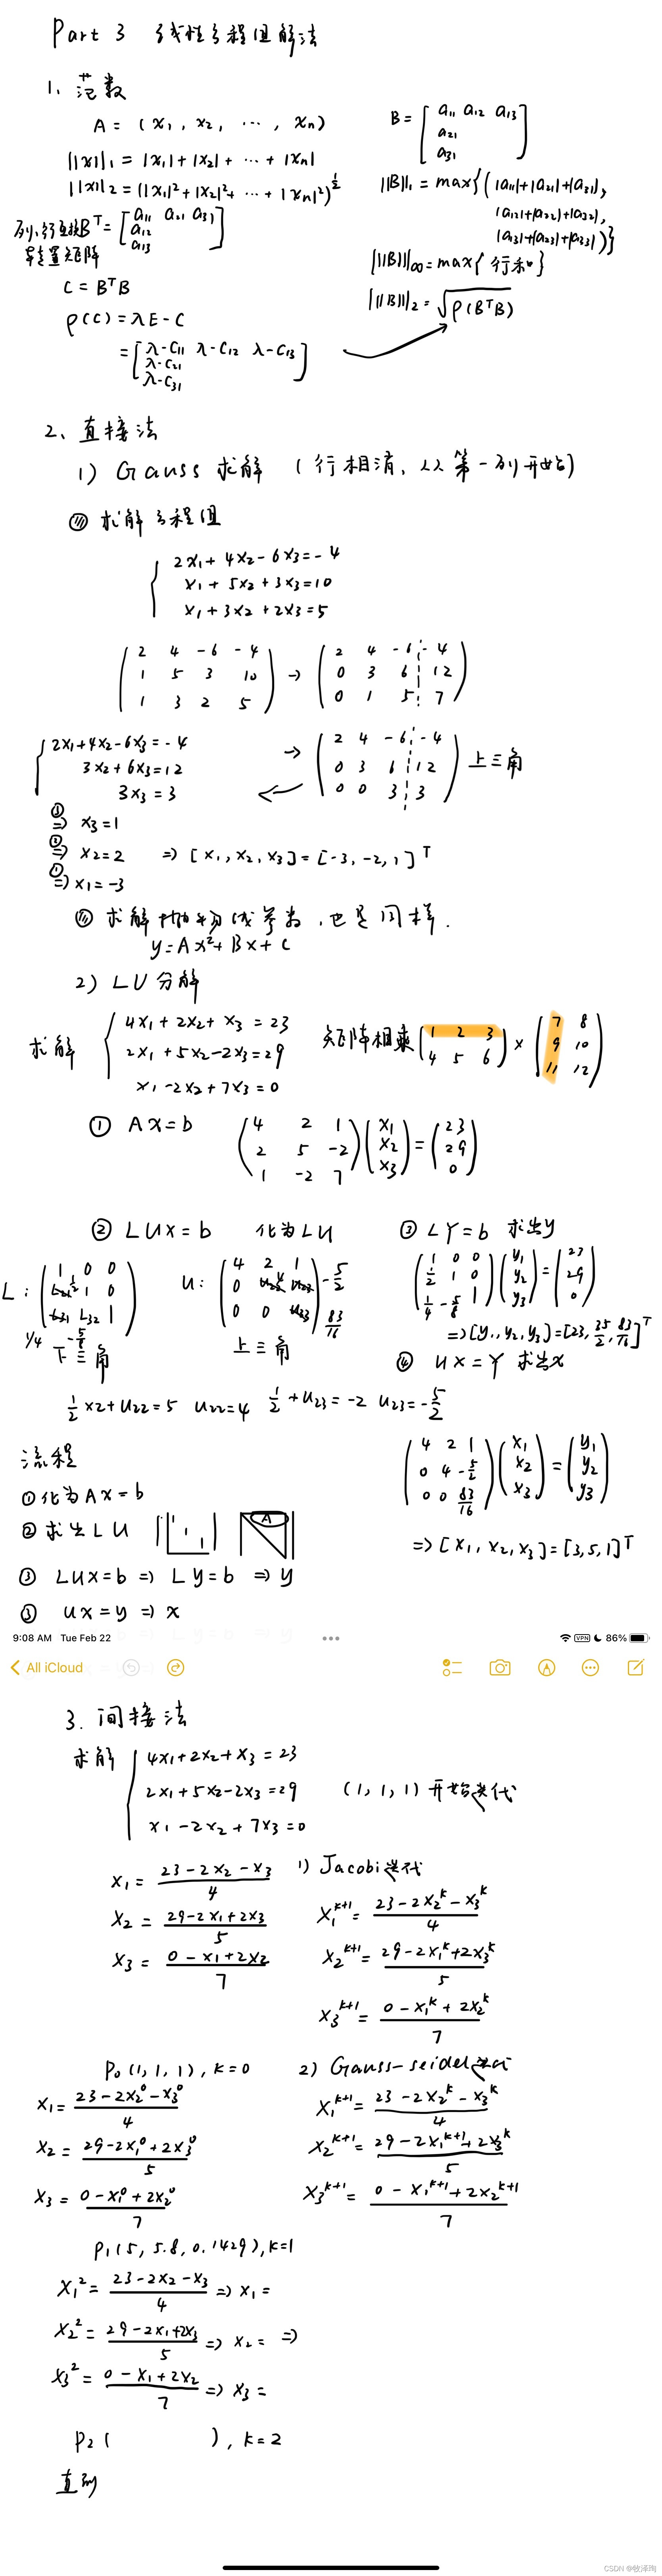 Part 3 线性方程组解法
1、范数
A = (x₁, x₂, ⋯, xₙ)
||x||₁ = |x₁|+|x₂|+ ⋯ +|xₙ|
||x||₂ = (|x₁|²+|x₂|²+ ⋯ +|xₙ|²)^½
B = [a₁₁ a₁₂ a₁₃
a₂₁
a₃₁]
||B||₁ = max{(|a₁₁|+|a₂₁|+|a₃₁|,
|a₁₂|+|a₂₂|+|a₃₂|,
|a₁₃|+|a₂₃|+|a₃₃|)}
||B||∞ = max{行和}
||B||₂ = √ρ(BᵀB)
列、行互换 Bᵀ = [a₁₁ a₂₁ a₃₁
转置矩阵 a₁₂
a₁₃]
C = BᵀB
ρ(C) = λE - C
= [λ-C₁₁ λ-C₁₂ λ-C₁₃
λ-C₂₁
λ-C₃₁]
2、直接法
1) Gauss 求解 (行相消、从第一列开始)
求解方程组
2x₁+4x₂-6x₃=-4
x₁+5x₂+3x₃=10
x₁+3x₂+2x₃=5
(2 4 -6 -4 → (2 4 -6 -4
1 5 3 10 0 3 6 12
1 3 2 5) 0 1 5 7)
→ (2 4 -6 -4
0 3 6 12
0 0 3 3) 上三角
2x₁+4x₂-6x₃=-4
3x₂+6x₃=12
3x₃=3
③⇒ x₃=1
②⇒ x₂=2 ⇒ [x₁, x₂, x₃]=[-3, -2, 1]ᵀ
①⇒ x₁=-3
求解抛物线参数,也是同样.
y=Ax²+Bx+C
2) LU分解
求解
4x₁+2x₂+x₃=23
2x₁+5x₂-2x₃=29
x₁-2x₂+7x₃=0
矩阵相乘 (1 2 3 × (7 8
4 5 6) 9 10
11 12)
① Ax=b (4 2 1 (x₁ = (23
2 5 -2 x₂ 29
1 -2 7) x₃) 0)
② LUx=b 化为LU
L: (1 0 0
L₂₁ ½ 1 0
L₃₁ L₃₂ 1)
1/4 -5/8
下三角
U: (4 2 1
0 u₂₂ 4 u₂₃ -5/2
0 0 u₃₃) 83/16
上三角
½×2+u₂₂=5 u₂₂=4 ½+u₂₃=-2 u₂₃=-5/2
③ LY=b 求出y
(1 0 0 (y₁ = (23
½ 1 0 y₂ 29
¼ -5/8 1) y₃) 0)
⇒[y₁, y₂, y₃]=[23, 35/2, 83/16]ᵀ
④ UX=Y 求出x
(4 2 1 (x₁ = (y₁
0 4 -5/2 x₂ y₂
0 0 83/16) x₃) y₃)
⇒[x₁, x₂, x₃]=[3, 5, 1]ᵀ
流程
①化为Ax=b
②求出LU A
③ LUx=b ⇒ Ly=b ⇒ y
③ Ux=y ⇒ x
9:08 AM Tue Feb 22
VPN 86%
All iCloud
3. 间接法
求解
4x₁+2x₂+x₃=23
2x₁+5x₂-2x₃=29
x₁-2x₂+7x₃=0
(1, 1, 1)开始迭代
x₁ = (23-2x₂-x₃)/4
x₂ = (29-2x₁+2x₃)/5
x₃ = (0-x₁+2x₂)/7
1) Jacobi迭代
x₁ᵏ⁺¹ = (23-2x₂ᵏ-x₃ᵏ)/4
x₂ᵏ⁺¹ = (29-2x₁ᵏ+2x₃ᵏ)/5
x₃ᵏ⁺¹ = (0-x₁ᵏ+2x₂ᵏ)/7
P₀(1, 1, 1), k=0
x₁ = (23-2x₂⁰-x₃⁰)/4
x₂ = (29-2x₁⁰+2x₃⁰)/5
x₃ = (0-x₁⁰+2x₂⁰)/7
2) Gauss-seidel迭代
x₁ᵏ⁺¹ = (23-2x₂ᵏ-x₃ᵏ)/4
x₂ᵏ⁺¹ = (29-2x₁ᵏ⁺¹+2x₃ᵏ)/5
x₃ᵏ⁺¹ = (0-x₁ᵏ⁺¹+2x₂ᵏ⁺¹)/7
P₁(5, 5.8, 0.1429), k=1
x₁² = (23-2x₂-x₃)/4 ⇒ x₁ =
x₂² = (29-2x₁+2x₃)/5 ⇒ x₂ = ⇒
x₃² = (0-x₁+2x₂)/7 ⇒ x₃ =
P₂( ), k=2
直到
CSDN @牧泽珣